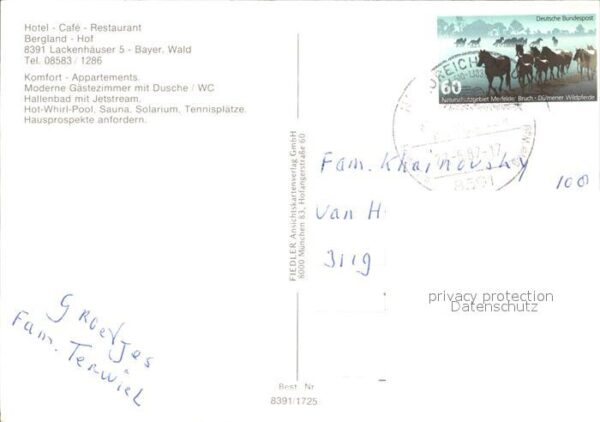 Hotel - Café - Restaurant
Bergland - Hof
8391 Lackenhäuser 5 - Bayer. Wald
Tel. 08583 / 1286
Komfort - Appartements.
Moderne Gästezimmer mit Dusche / WC
Hallenbad mit Jetstream.
Hot-Whirl-Pool, Sauna, Solarium, Tennisplätze.
Hausprospekte anfordern.
Groetjes
Fam. Terwiel
FIEDLER Ansichtskartenverlag GmbH
8000 München 83, Hofangerstraße 60
Best. Nr.
8391/1725
Deutsche Bundespost
60
Naturschutzgebiet Merfelder Bruch · Dülmener Wildpferde
8391
Fam. Khainovsky
van H
3119
100
privacy protection
Datenschutz